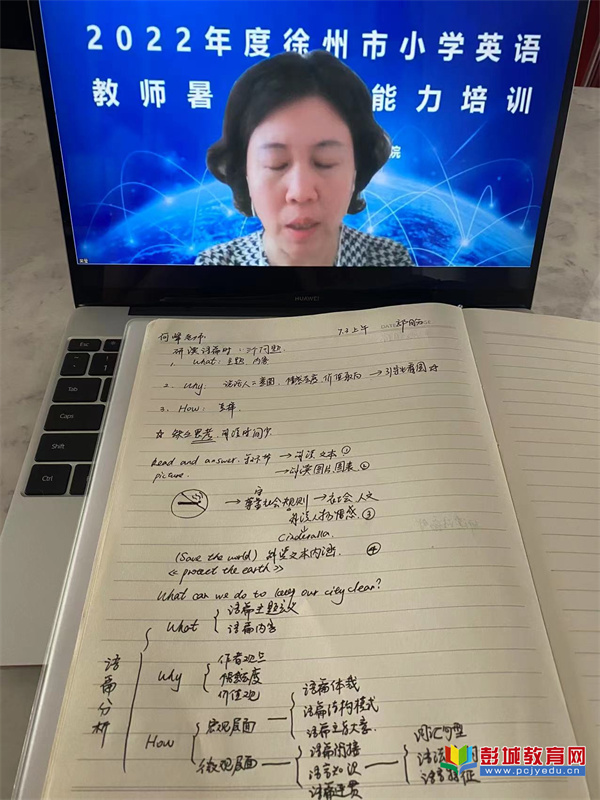 2022年度徐州市小学英语
教师暑 能力培训
院
HUAWEI
Esc
Tab
Caps
Shift
Ctrl
7.3上午
研读语篇时:3个问题.
1. What: 主题 内容
2. Why. 价值取向
3. How:
☆ 思考
Read and answer. → 朗读 文本 ①
picture. → 阅读图片图表 ②
→ 社会规则 → 社会 人文
情感. ③
Cinderalla.
(Save the world) 文本内涵. ④
<< protect the earth >>
What can we do to keep our city clean?
What 语篇主题意义
语篇内容
语篇分析
Why 作者观点
情感态度
价值观
How 宏观层面 语篇体裁
语篇结构模式
语篇主题大意
微观层面 语篇衔接
语言知识
语篇连贯
词汇句型
语法
语言特征
彭城教育网
www.pcjyedu.cn